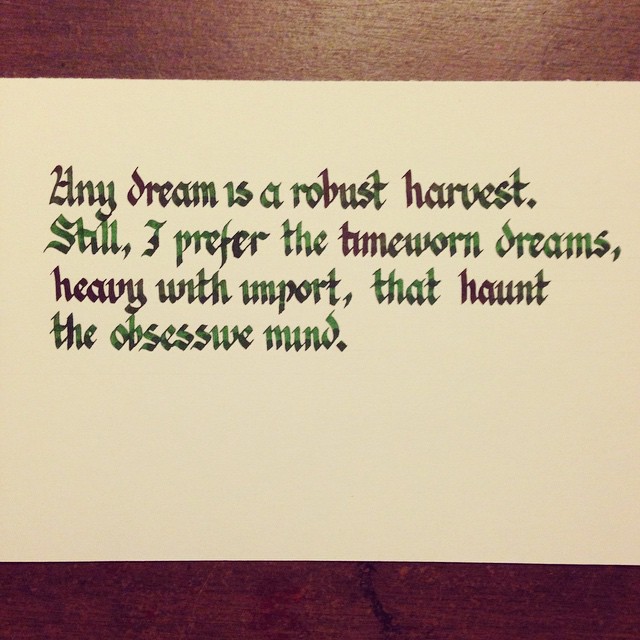 Any dream is a robust harvest.
Still, I prefer the timeworn dreams,
heavy with import, that haunt
the obsessive mind.